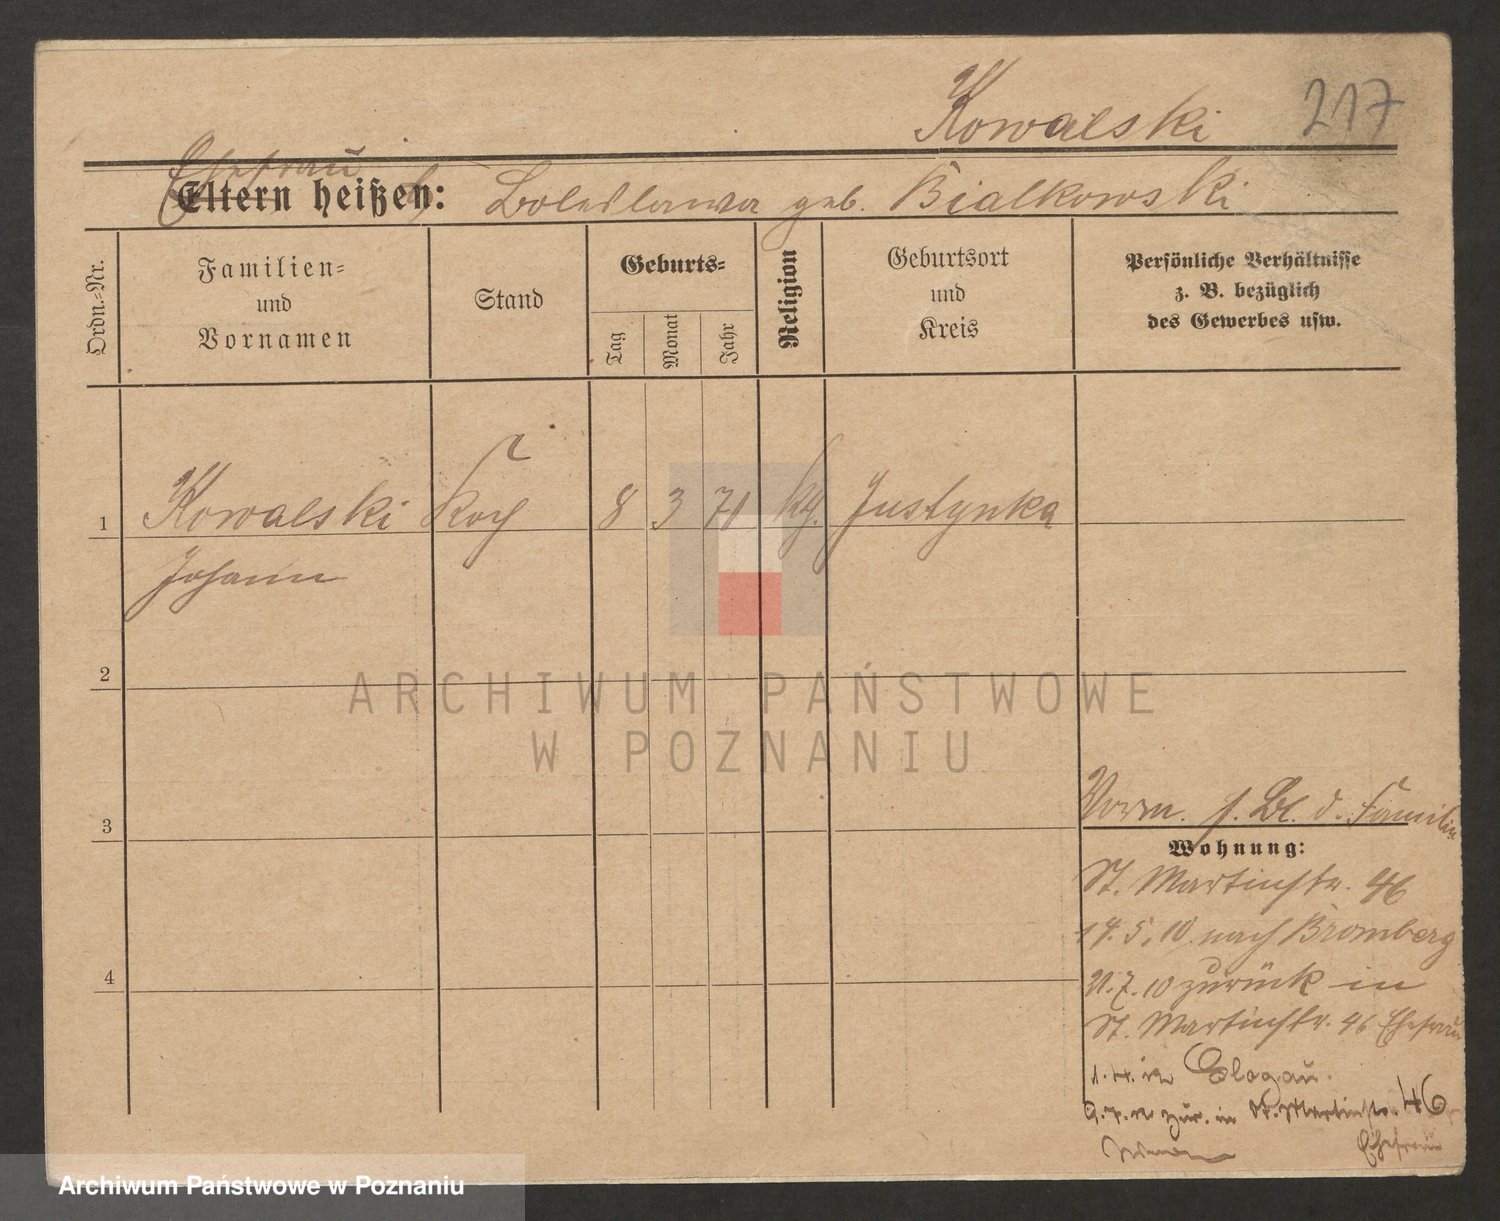 Kowalski
217
Ehefrau
Eltern heißen: Boleslawa geb. Bialkowski
Ordn.=Nr.
Familien=
und
Vornamen
Stand
Geburts=
Tag
Monat
Jahr
Religion
Geburtsort
und
Kreis
Persönliche Verhältnisse
z. B. bezüglich
des Gewerbes usw.
1 Kowalski Koch 8 3 71 kth. Justynka
Johann
2
3
4
Vorm. s. Bl. d. Familie
Wohnung:
St. Martinstr. 46
14.5.10 nach Bromberg
21.7.10 zurück in
St. Martinstr. 46 Ehefrau
1.4.12 Glogau.
9.7.12 zur. in St. Martinstr. 46
Ehefrau
ARCHIWUM PAŃSTWOWE
W POZNANIU
Archiwum Państwowe w Poznaniu